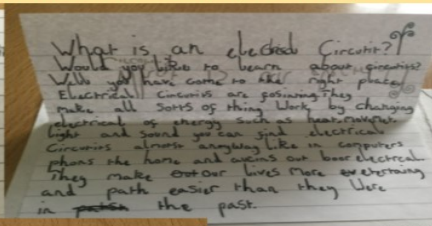 What is an elecdrod Circutit?
Would you like to learn about circutios?
Well you have come to the right place
Electrical Circutios are fosinating. They
make all Sorts of thing Work by changing
electrical of energy such as heat, movement
light and Sound you can find electrical
Circutios almost anyway like in computers
phons the home and even out boor electreal
They make our lives more entertaining
and path easier than they Were
in the past.